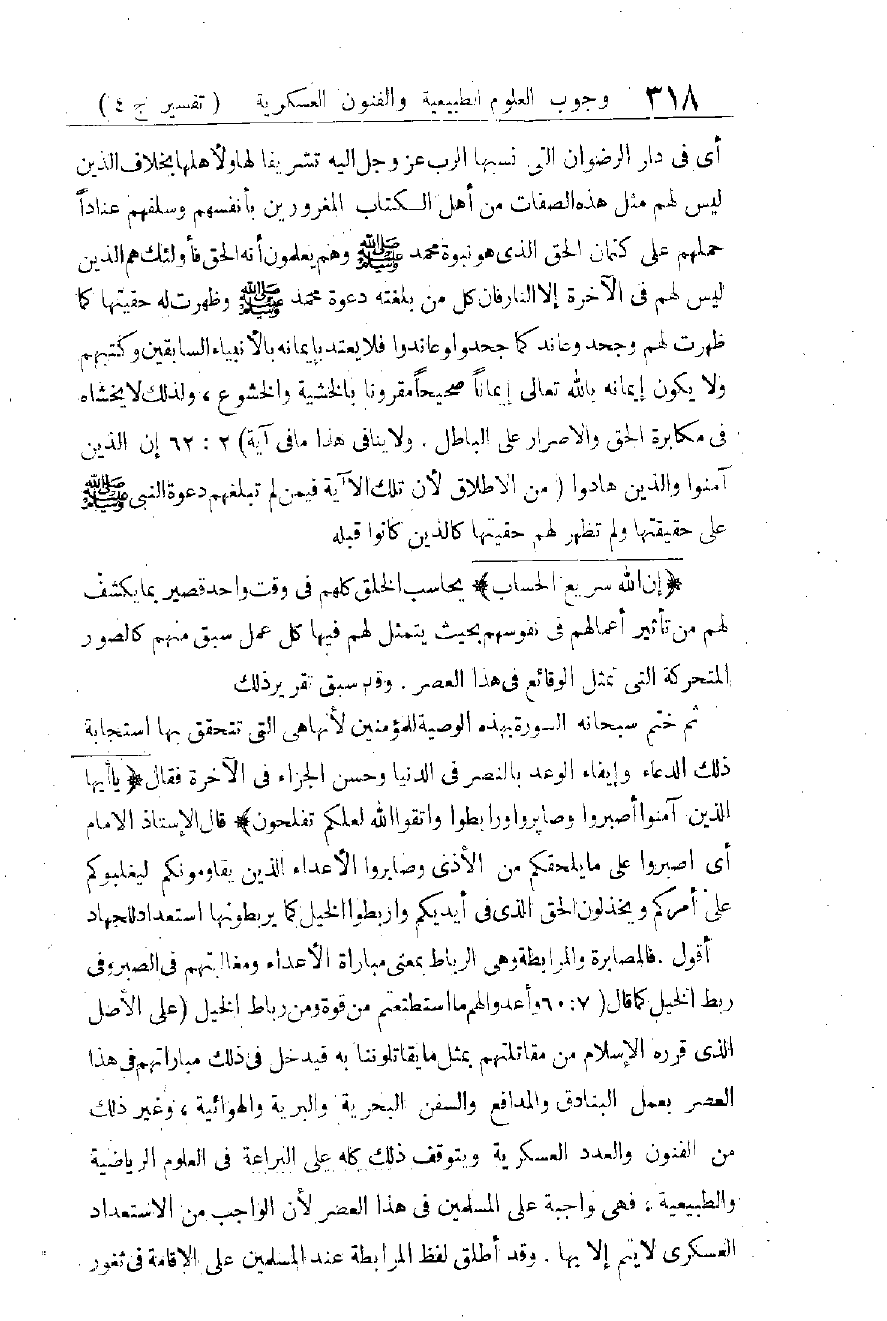 ٣١٨ وجوب العلوم الطبيعية والفنون العسكرية ( تفسير ج ٤ )
أى فى دار الرضوان التى نسبها الرب عز وجل اليه تشريفا لها ولأهلها بخلاف الذين
ليس لهم مثل هذه الصفات من أهل الكتاب المغرورين بأنفسهم وسلفهم عناداً
حملهم على كتمان الحق الذى هو نبوة محمد ﷺ وهم يعلمون أنه الحق فأولئك هم الذين
ليس لهم فى الآخرة إلا النار فان كل من بلغته دعوة محمد ﷺ وظهرت له حقيتها كما
ظهرت لهم وجحد وعاند كما جحدوا وعاندوا فلا يعتد بإيمانه بالأنبياء السابقين وكتبهم
ولا يكون إيمانه بالله تعالى إيماناً صحيحاً مقرونا بالخشية والخشوع ، ولذلك لا يخشاه
فى مكابرة الحق والاصرار على الباطل . ولا ينافى هذا مافى آية) ٢ : ٦٢ إن الذين
آمنوا والذين هادوا ( من الاطلاق لأن تلك الآية فيمن لم تبلغهم دعوة النبى ﷺ
على حقيقتها ولم تظهر لهم حقيتها كالذين كانوا قبله
﴿إن الله سريع الحساب﴾ يحاسب الخلق كلهم فى وقت واحد قصير بما يكشف
لهم من تأثير أعمالهم فى نفوسهم بحيث يتمثل لهم فيها كل عمل سبق منهم كالصور
المتحركة التى تمثل الوقائع فى هذا العصر . وقد سبق تقرير ذلك
ثم ختم سبحانه السورة بهذه الوصية للمؤمنين لأنها هى التى تتحقق بها استجابة
ذلك الدعاء وإيفاء الوعد بالنصر فى الدنيا وحسن الجزاء فى الآخرة فقال ﴿ يا أيها
الذين آمنوا أصبروا وصابروا ورابطوا واتقوا الله لعلكم تفلحون﴾ قال الإستاذ الامام
أى اصبروا على ما يلحقكم من الأذى وصابروا الأعداء الذين يقاومونكم ليغلبوكم
على أمركم ويخذلون الحق الذى فى أيديكم واربطوا الخيل كما يربطونها استعدادا للجهاد
أقول . فالمصابرة والمرابطة وهى الرباط بمعنى مباراة الأعداء ومغالبتهم فى الصبر وفى
ربط الخيل كما قال ( ٧ : ٦٠ وأعدوا لهم ما استطعتم من قوة ومن رباط الخيل ( على الأصل
الذى قرره الإسلام من مقاتلتهم بمثل ما يقاتلوننا به فيدخل فى ذلك مباراتهم فى هذا
العصر بعمل البنادق والمدافع والسفن البحرية والبرية والهوائية ، وغير ذلك
من الفنون والعدد العسكرية ويتوقف ذلك كله على البراعة فى العلوم الرياضية
والطبيعية ، فهى واجبة على المسلمين فى هذا العصر لأن الواجب من الاستعداد
العسكرى لا يتم إلا بها . وقد أطلق لفظ المرابطة عند المسلمين على الاقامة فى ثغور